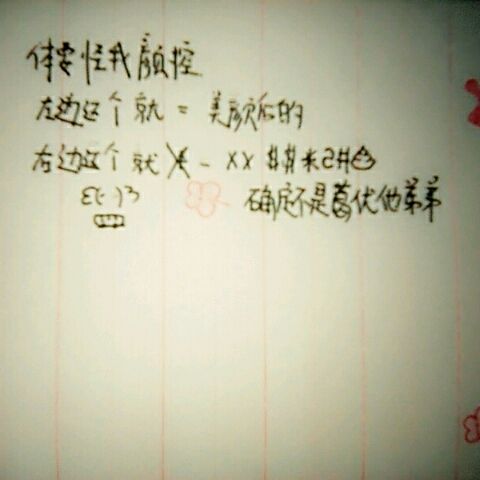 体要怪我颜控
左边这个就 = 美颜后的
右边这个就 - XX 井井米ට井
ε(··)з 确定不是葛优他弟弟